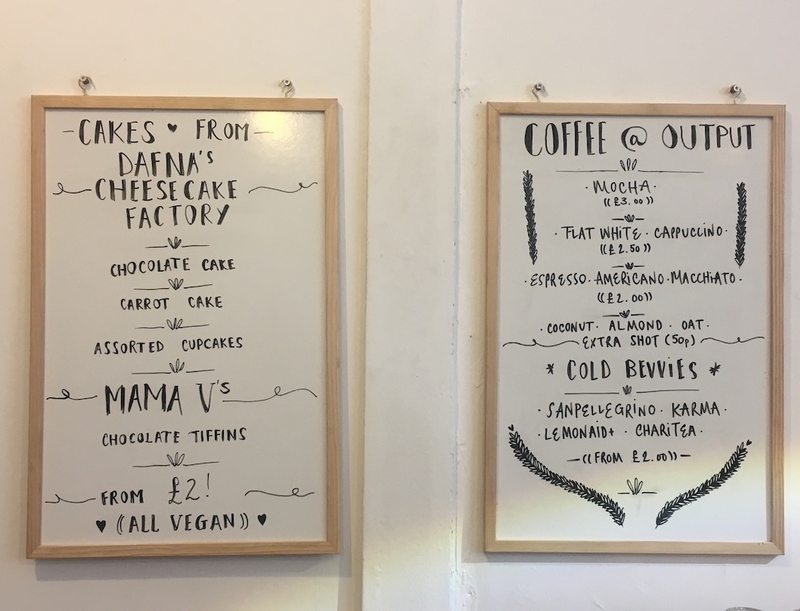 -CAKES ♥ FROM-
DAFNA'S
CHEESECAKE
FACTORY
CHOCOLATE CAKE
CARROT CAKE
ASSORTED CUPCAKES
MAMA V'S
CHOCOLATE TIFFINS
FROM £2!
♥ ((ALL VEGAN)) ♥
COFFEE @ OUTPUT
·MOCHA·
((£3.00))
·FLAT WHITE · CAPPUCCINO·
((£2.50))
·ESPRESSO·AMERICANO·MACCHIATO·
((£2.00))
·COCONUT· ALMOND · OAT·
EXTRA SHOT (50p)
* COLD BEVVIES *
·SANPELLEGRINO · KARMA·
·LEMONAID+ · CHARITEA·
—((FROM £2.00))—